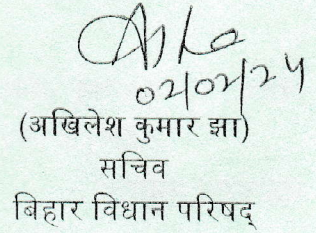 02/02/24
(अखिलेश कुमार झा)
सचिव
बिहार विधान परिषद्